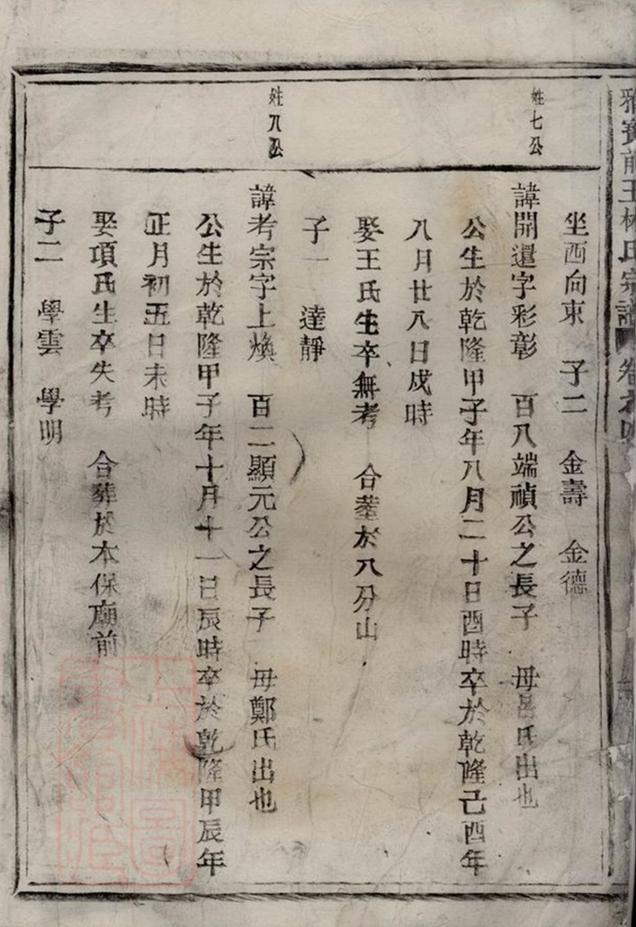 王林氏宗譜 卷之
坐西向東 子二 金壽 金德
姓七公
諱開運字彩彰 百八端禎公之長子 母呂氏出也
公生於乾隆甲子年八月二十日酉時卒於乾隆己酉年
八月廿八日戌時
娶王氏生卒無考 合塟於八分山
子一 達靜
姓八公
諱考宗字上煥 百二顯元公之長子 母鄭氏出也
公生於乾隆甲子年十月十一日辰時卒於乾隆甲辰年
正月初五日未時
娶項氏生卒失考 合葬於本保廟前
子二 學雲 學明